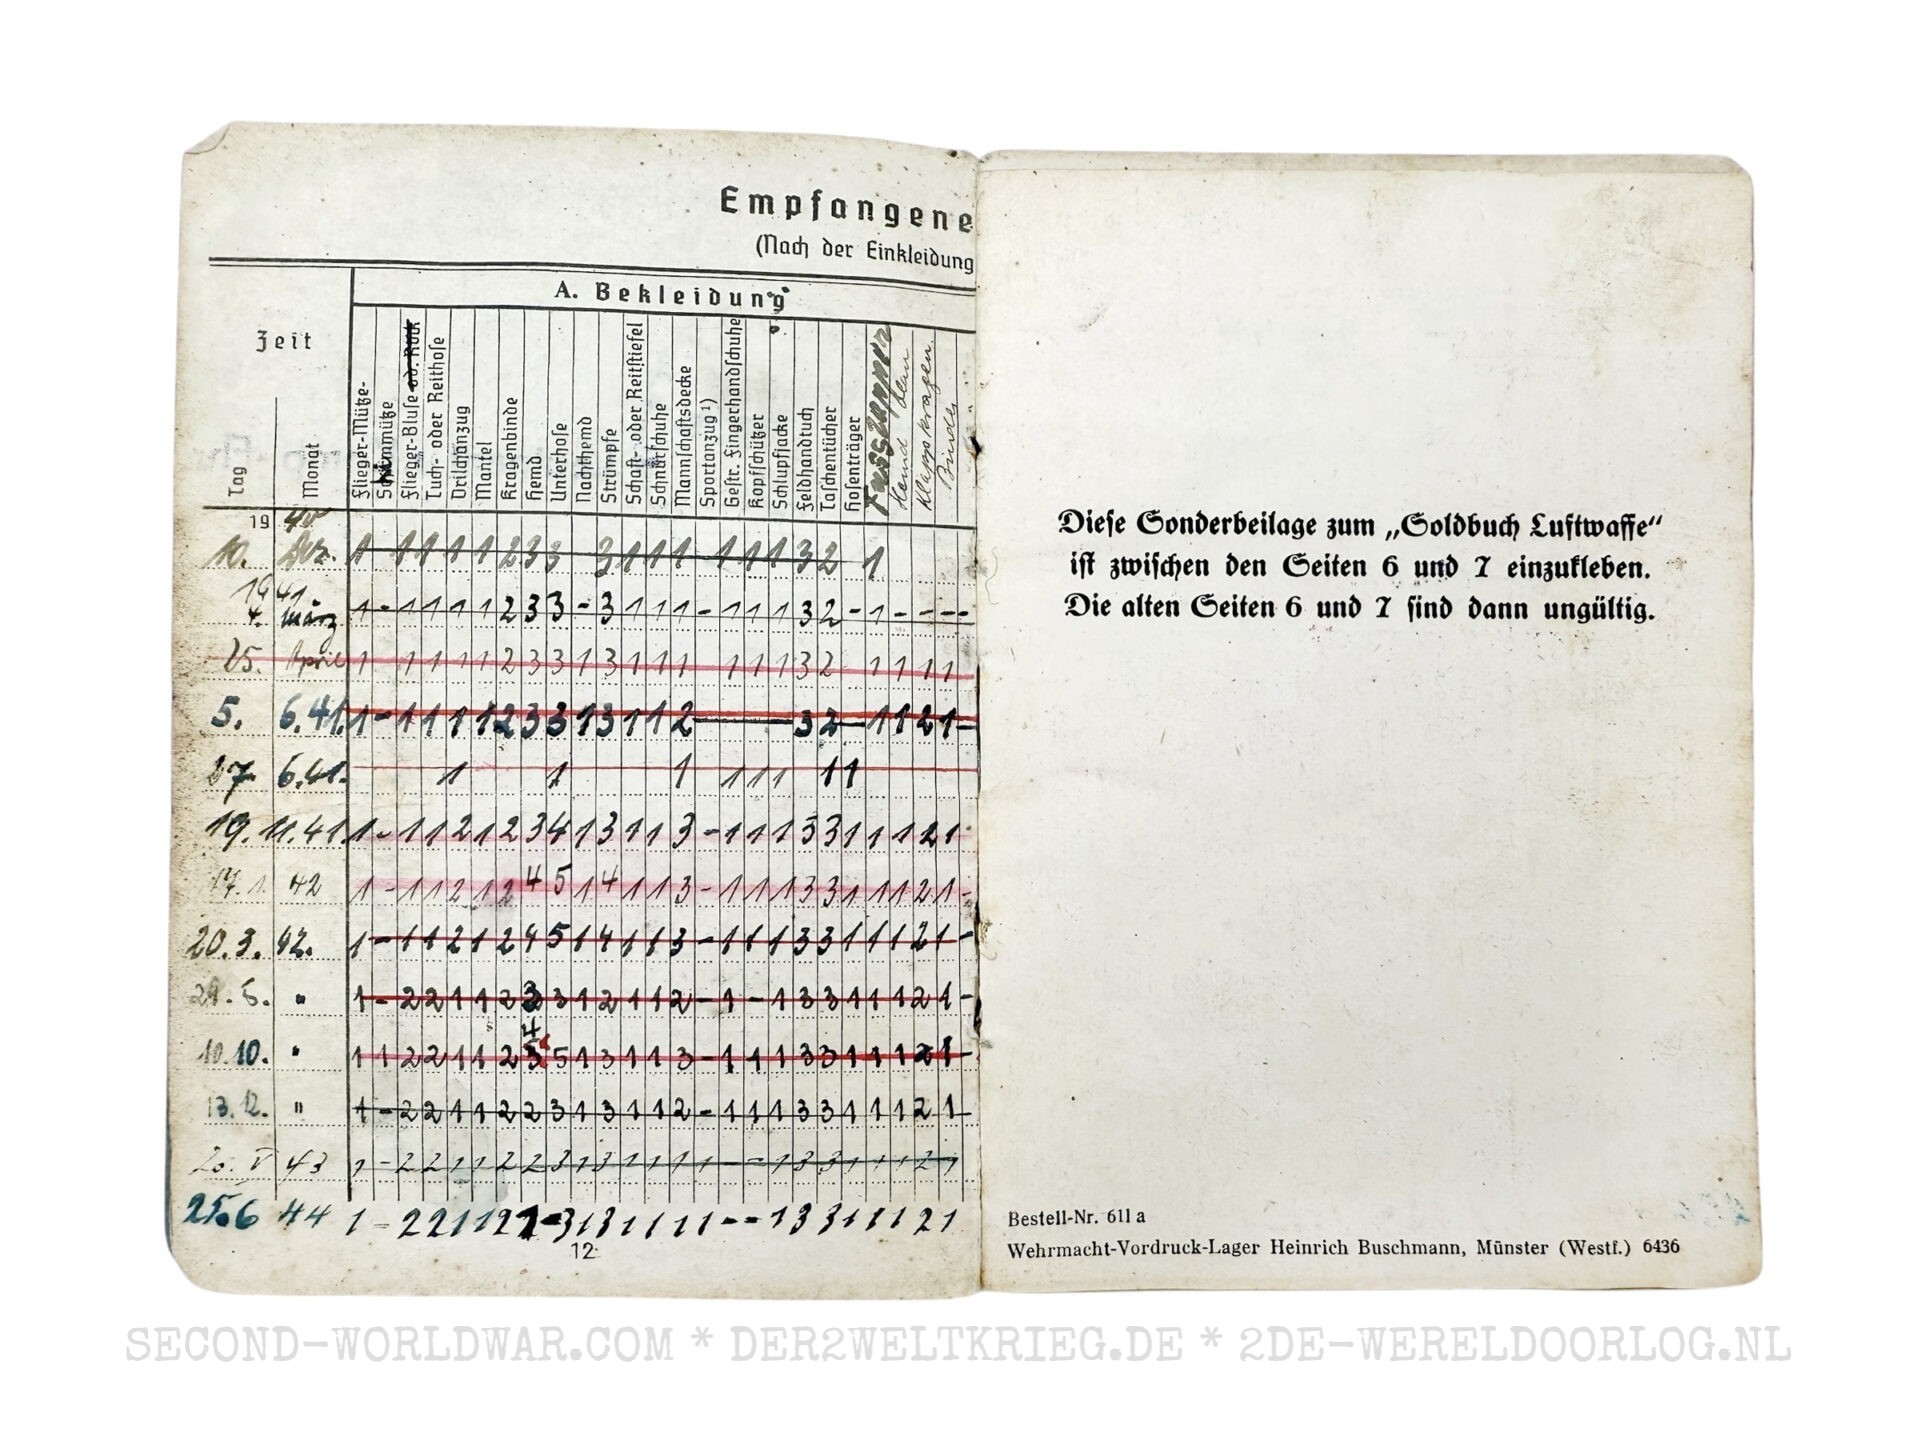 Empfangene
(Nach der Einkleidung
A. Bekleidung
Zeit
Tag
Monat
Flieger-Mütze-
Schirmmütze
Flieger-Bluse od. Rock
Tuch- oder Reithose
Drillichanzug
Mantel
Kragenbinde
Hemd
Unterhose
Nachthemd
Strümpfe
Schaft- oder Reitstiefel
Schnürschuhe
Mannschaftsdecke
Sportanzug ¹)
Gestr. Fingerhandschuhe
Kopfschützer
Schlupfjacke
Feldhandtuch
Taschentücher
Hosenträger
Hemd blau
Klappkragen
Binder
19 40
10. Dez. 1 1 1 1 1 2 3 3 3 1 1 1 1 1 1 3 2 1
1941
4. März 1 - 1 1 1 1 2 3 3 - 3 1 1 1 - 1 1 1 3 2 - 1 - - - -
25. April 1 1 1 1 1 2 3 3 1 3 1 1 1 1 1 1 3 2 1 1 1 1
5. 6.41. 1 - 1 1 1 1 2 3 3 1 3 1 1 2 3 2 1 1 2 1 -
27 6.41. 1 1 1 1 1 1 1 1
19. 11.41. 1 - 1 1 2 1 2 3 4 1 3 1 1 3 - 1 1 1 3 3 1 1 1 2 1
17. 1. 42 1 - 1 1 2 1 2 4 5 1 4 1 1 3 - 1 1 1 3 3 1 1 1 2 1 -
20. 3. 42. 1 - 1 1 2 1 2 4 5 1 4 1 1 3 - 1 1 1 3 3 1 1 1 2 1 -
6. " 1 - 2 2 1 1 2 3 3 1 2 1 1 2 - 1 - 1 3 3 1 1 1 2 1 -
4
10. 10. " 1 1 2 2 1 1 2 3 5 1 3 1 1 3 - 1 1 1 3 3 1 1 1 2 1 -
13. 12. " 1 - 2 2 1 1 2 2 3 1 3 1 1 2 - 1 1 1 3 3 1 1 1 2 1
V 43 1 - 2 2 1 1 2 2 3 1 3 1 1 1 1 - - 1 3 3 1 1 1 2 1
25.6 44 1 - 2 2 1 1 2 3 1 3 1 1 1 1 - - 1 3 3 1 1 1 2 1
12
Diese Sonderbeilage zum „Soldbuch Luftwaffe“
ist zwischen den Seiten 6 und 7 einzukleben.
Die alten Seiten 6 und 7 sind dann ungültig.
Bestell-Nr. 611 a
Wehrmacht-Vordruck-Lager Heinrich Buschmann, Münster (Westf.) 6436
SECOND-WORLDWAR.COM * DER2WELTKRIEG.DE * 2DE-WERELDOORLOG.NL